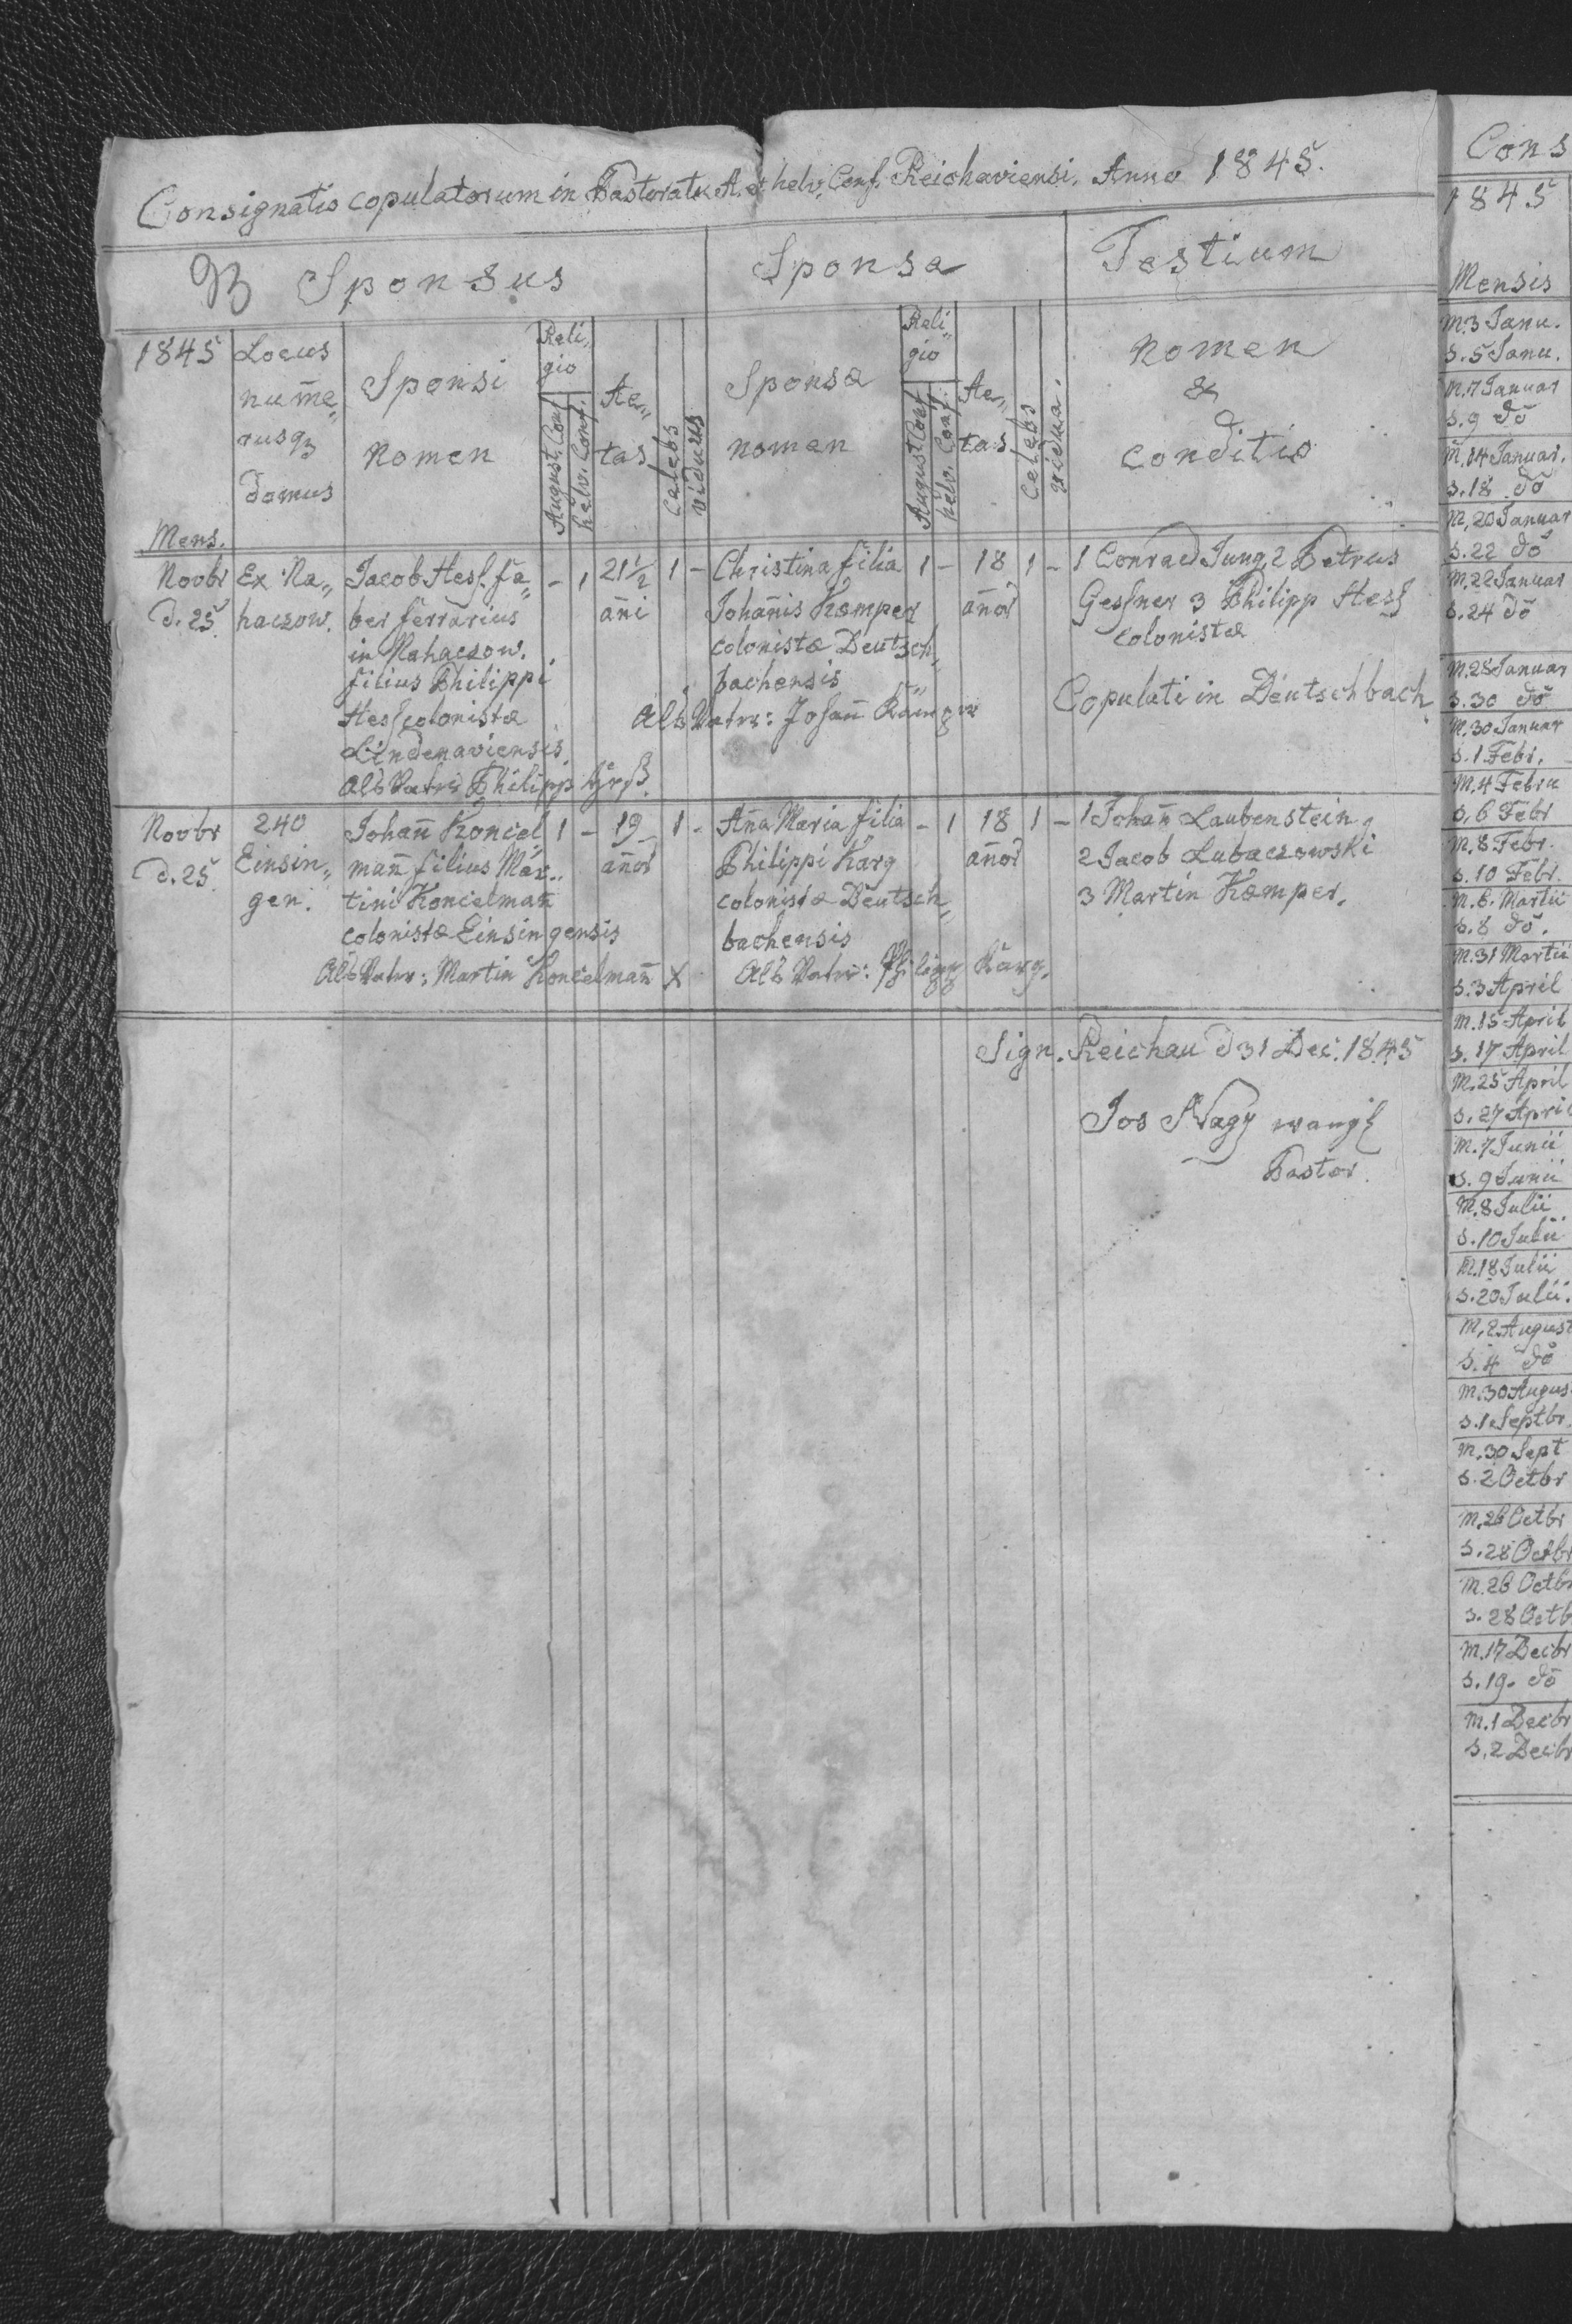 Consignatio copulatorum in Pastoratu A. et helv. Conf. Reichaviensi. Anno 1845.
Sponsus
Sponsa
Testium
1845
Locus nume„ rusq3 domus
Sponsi nomen
Reli„ gio
August. Conf
helv. Conf.
Ae„ tas
Calebs
viduus
Sponsæ nomen
Reli„ gio
August Conf
helv. Conf.
Ae„ tas
Celebs
vidua.
nomen & conditio
Mens.
Novbr d. 25.
Ex Na„ haczow.
Jacob Hess. fa„
ber ferrarius
in Nahaczow.
filius Philippi
Hess colonistæ
Lindenaviensis.
Als Vater Philipp Heß.
- 1
21½ añi
1 -
Christina filia
Johañis Kæmper
colonistæ Deutsch„
bachensis
Als Vater: Johañ Kämper
1 -
18 añor
1 -
1 Conrad Jung, 2 Petrus
Gessner 3 Philipp Hess
Colonistæ
Copulati in Deutschbach
Novbr d. 25.
240 Einsin„ gen.
Johañ Koncel„
mañ filius Mar„
tini Koncelmañ
colonistæ Einsingensis
Als Vater: Martin Koncelmañ X
1 -
19 añor
1 -
Aña Maria filia
Philippi Karg
colonistæ Deutsch„
bachensis
Als Vater: Philipp Karg.
- 1
18 añor
1 -
1 Johañ Laubenstein,
2 Jacob Lubaczowski
3 Martin Kæmper.
Sign. Reichau d 31 Dec. 1845
Jos Nagy
Pastor.
Cons
1845
Mensis
M. 3 Janu.
s. 5 Janu.
M. 7 Januar
s. 9 do
M. 14 Januar.
s. 18 do
M. 20 Januar
s. 22 do
M. 22 Januar
s. 24 do
M. 28 Januar
s. 30 do
M. 30 Januar
s. 1 Febr.
M. 4 Febru
s. 6 Febr
M. 8 Febr.
s. 10 Febr.
M. 6. Martii
s. 8 do.
M. 31 Martii
s. 3 April
M. 15 April
s. 17 April
M. 25 April
s. 27 April
M. 7 Junii
s. 9 Junii
M. 8 Julii
s. 10 Julii
M. 18 Julii
s. 20 Julii.
M. 2 August
s. 4 do
M. 30 Augus
s. 1 Septbr.
M. 30 Sept
s. 2 Octbr
M. 26 Octbr
s. 28 Octbr
M. 26 Octbr
s. 28 Octb
M. 17 Decbr
s. 19. do
M. 1 Decbr
s. 2 Decbr